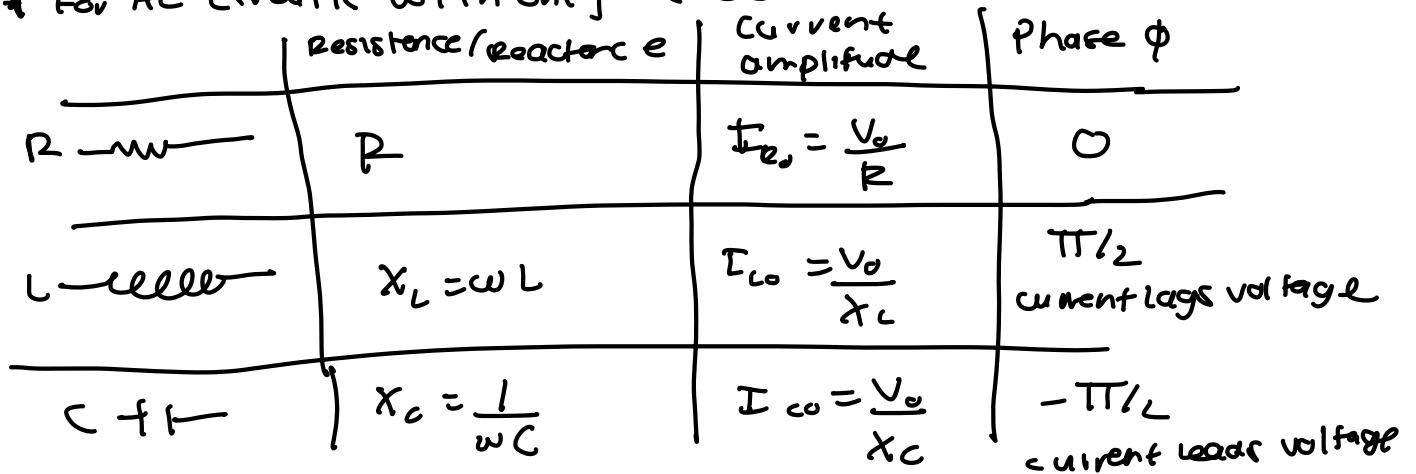 * For AC circuit with only
Resistence/Reactance Current amplitude Phase φ
R R I_R₀ = V₀/R 0
L X_L = ωL I_L0 = V₀/X_L π/2
current lags voltage
C X_C = 1/ωC I_C0 = V₀/X_C -π/2
current leads voltage